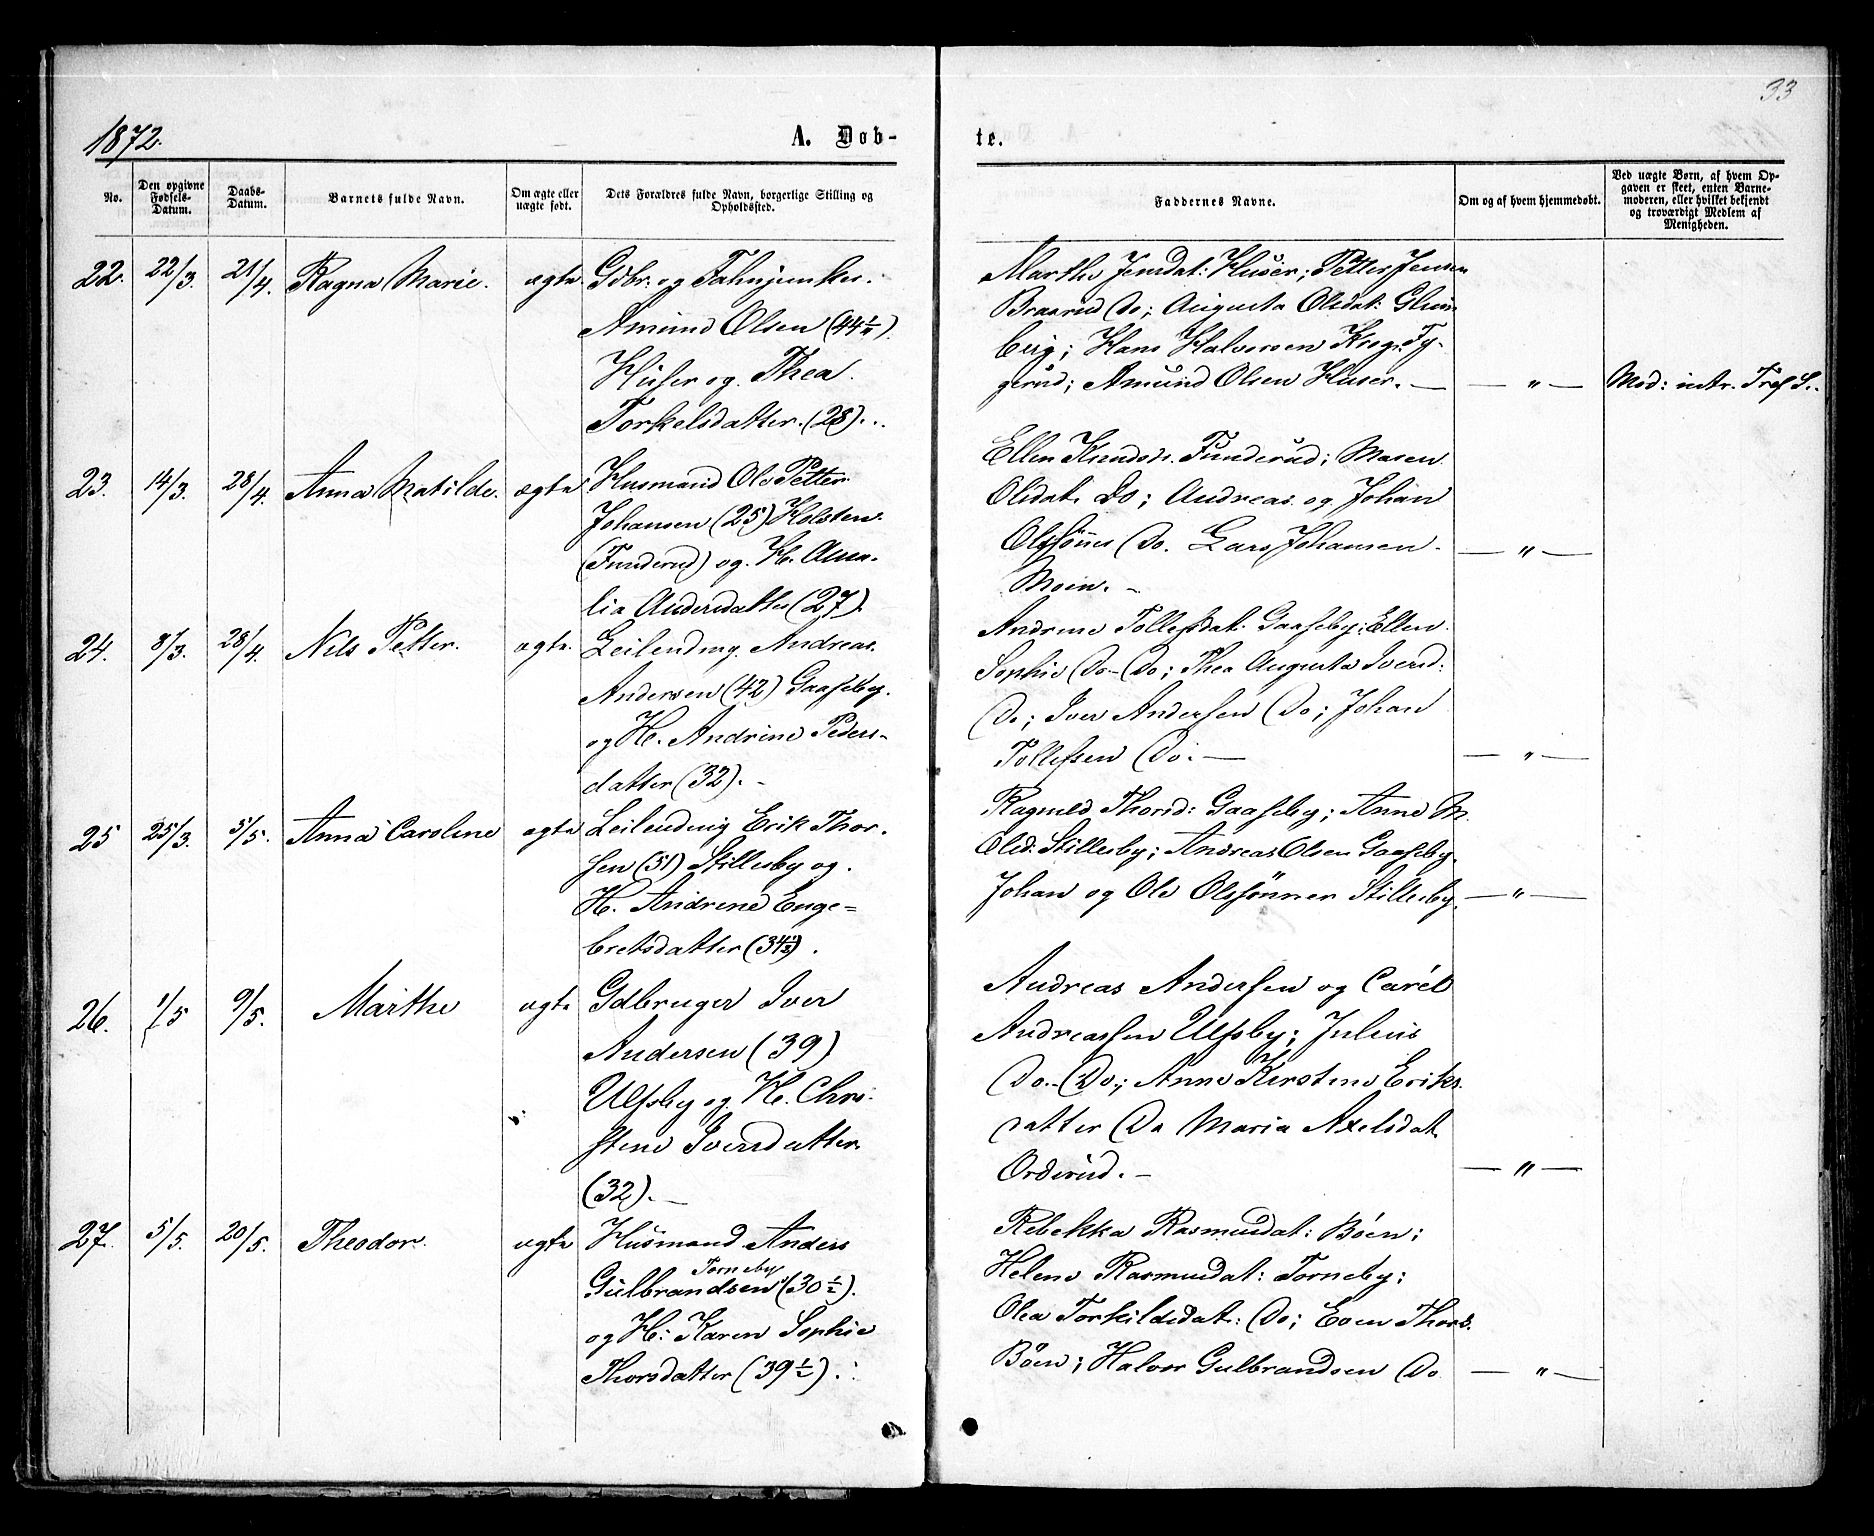 33
1872.
A. Døb-
te.
No.
Den opgivne Fødsels-Datum.
Daabs-Datum.
Barnets fulde Navn.
Om ægte eller uægte født.
Dets Forældres fulde Navn, borgerlige Stilling og Opholdssted.
Faddernes Navne.
Om og af hvem hjemmedøbt.
Ved uægte Børn, af hvem Op-
gaven er skeet, enten Barne-
moderen, eller hvilket bekjendt
og troværdigt Medlem af
Menigheden.
22. 22/3. 21/4. Ragna Marie. ægte Gdbr. og Fahnjunker.
Amund Olsen (44½).
Huser og Thea
Torkelsdatter. (28).
Marthe Jensdat: Huser; Petter Jensen
Braarud Do; Augusta Olsdat: Glom
berg; Hans Halvorsen Krog Ty-
gerud; Amund Olsen Huser. — — " — Mod: intr.
23. 14/3. 28/4. Anna Matilde. ægte Husmand Ole Petter
Johansen (25) Holsten
(Funderud) og H. Ama-
lia Andersdatter (27).
Ellen Knudsd. Funderud; Maren
Olsdat. Do; Andreas og Johan
Olssønner Do. Lars Johansen — " —
Moen. -
24. 8/3. 28/4. Nils Petter. ægte. Leilending Andreas
Andersen (42) Gaaseby.
og H. Andrine Peders-
datter (32). -
Andrine Tollefsdat: Gaaseby; Ellen
Sophie Do - Do; Thea Augusta Iversd:
Do; Iver Andersen Do; Johan
Tollefsen Do. — — " —
25 25/3. 5/5. Anna Caroline ægte Leilending Erik Thor-
sen (51) Stillesby og
H. Andrine Enge=
bretsdatter (34½).
Ragnild Thorsd: Gaaseby; Anne M.
Olsd. Stillesby; Andreas Olsen Gaaseby.
Johan og Ole Olssønner Stillesby. — " —
26. 1/5 9/5. Marthe ægte Gdbruger Iver
Andersen (39)
Ulfsby og H. Chri-
stine Iversdatter
(32). —
Andreas Andersen og Carel
Andreassen Ulfsby; Julius
Do - Do; Anne Kirstine Eriks
datter Do Maria Axelsdat.
Orderud. - — " —
27. 5/5. 20/5. Theodor. ægte Husmand Anders
Torneby
Gulbrandsen (30½).
og H: Karen Sophie
Thorsdatter (39½).
Rebekka Rasmusdat: Bøen;
Helene Rasmusdat: Torneby;
Olea Torkildsdat: Do; Even Thors.
Bøen; Halvor Gulbrandsen Do — " —